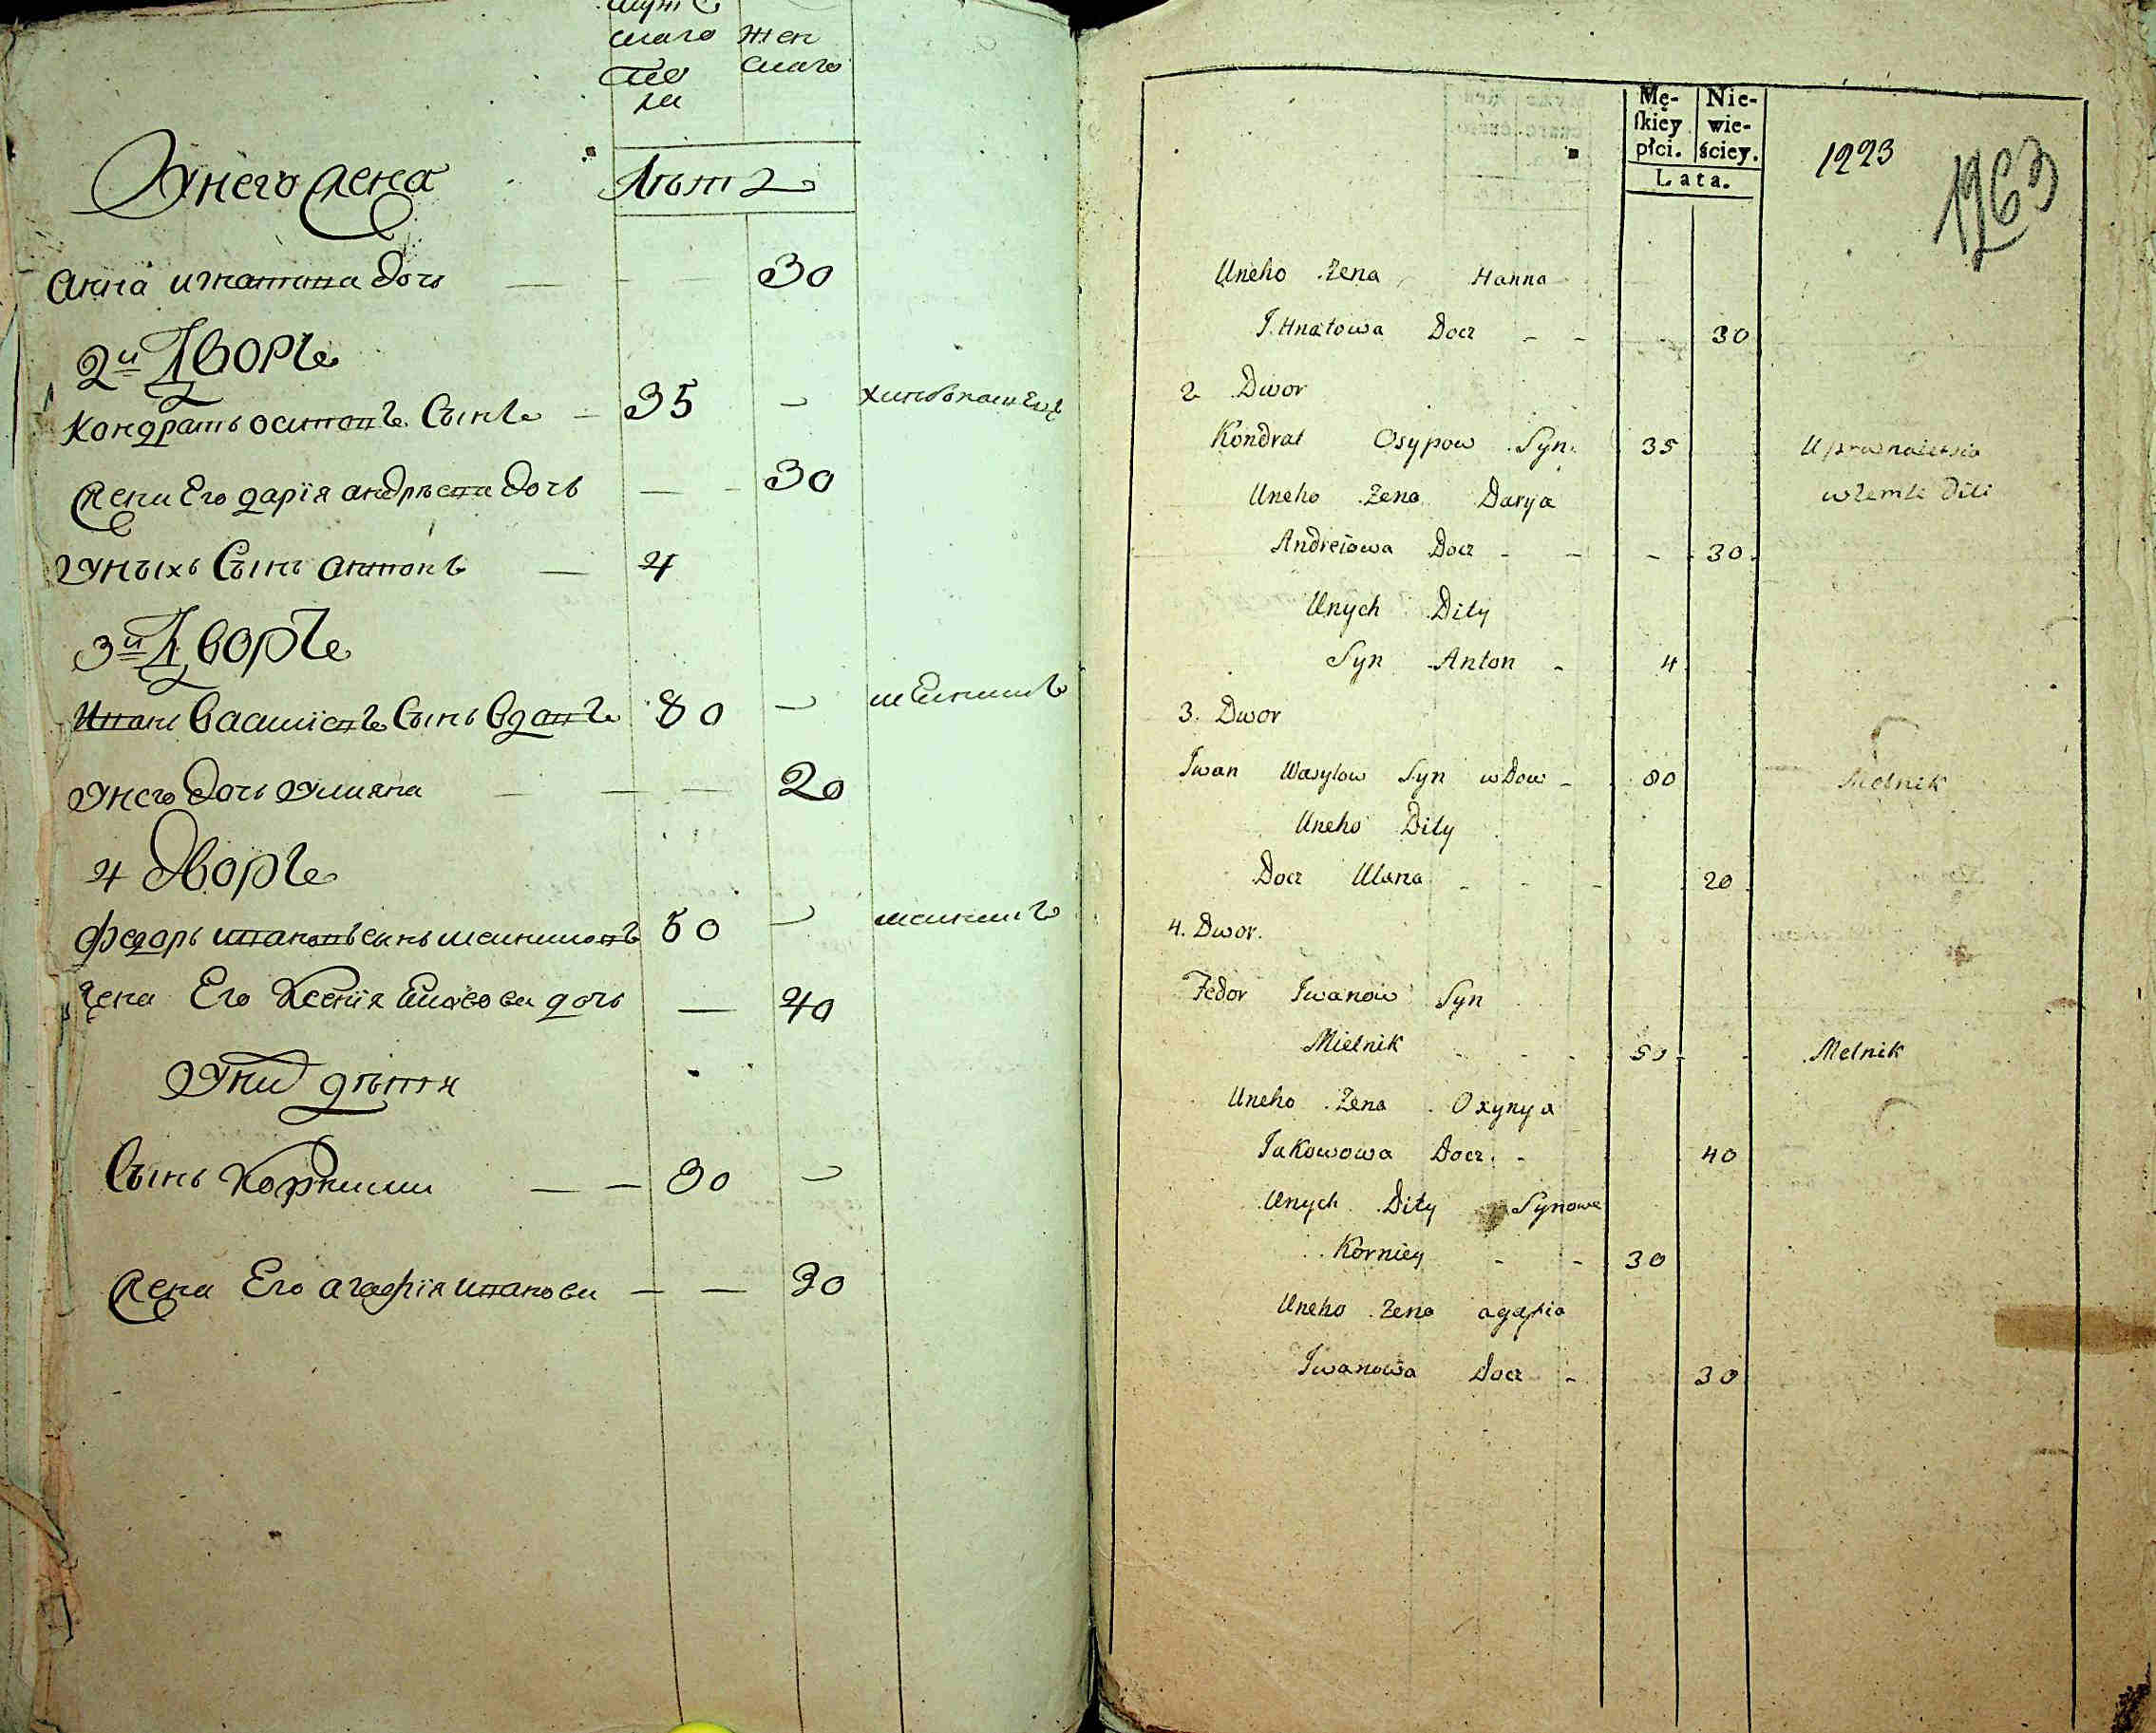 муж
скаго жен
по скаго
ла
Унего жена Лѣтъ
Анна игнатова дочь — — 30
2й Дворъ
Кондратъ осиповъ Сынъ — 35 —
жена Его дарїя андрѣева дочь — — 30
уныхъ Сынъ антонъ — 4
3й Дворъ
Иванъ василїевъ Сынъ вдовъ 80 — мелникъ
унего дочь уляна — — — 20
4 Дворъ
федоръ ивановъ сынъ мелниковъ 50 — мелникъ
жена Его Ксенїя дочь — 40
уних дѣти
Сынъ Корнили — — 30 —
жена Его агафїя иванова — — 30
Mę- Nie-
ſkiey wie-
płci. ściey.
Lata.
1223
1263
Uneho Zena Hanna
J. Hnatowa Docz - - 30
2 Dwor
Kondrat Osypow Syn. 35
Uneho Zena Darya
Andreiowa Docz - - - 30
Unych Dity
Syn Anton - 4
3. Dwor
Jwan Wasylow Syn wdow - 80 Melnik
Uneho Dity
Docz Ulana - - - 20
4. Dwor.
Fedor Jwanow Syn
Mielnik - - - 50 - - Melnik
Uneho Zena Oxynya
Jakowowa Docz. - 40
Unych Dity Synowe
Korniey - - 30
Uneho Zena agafia
Jwanowa Docz - 30